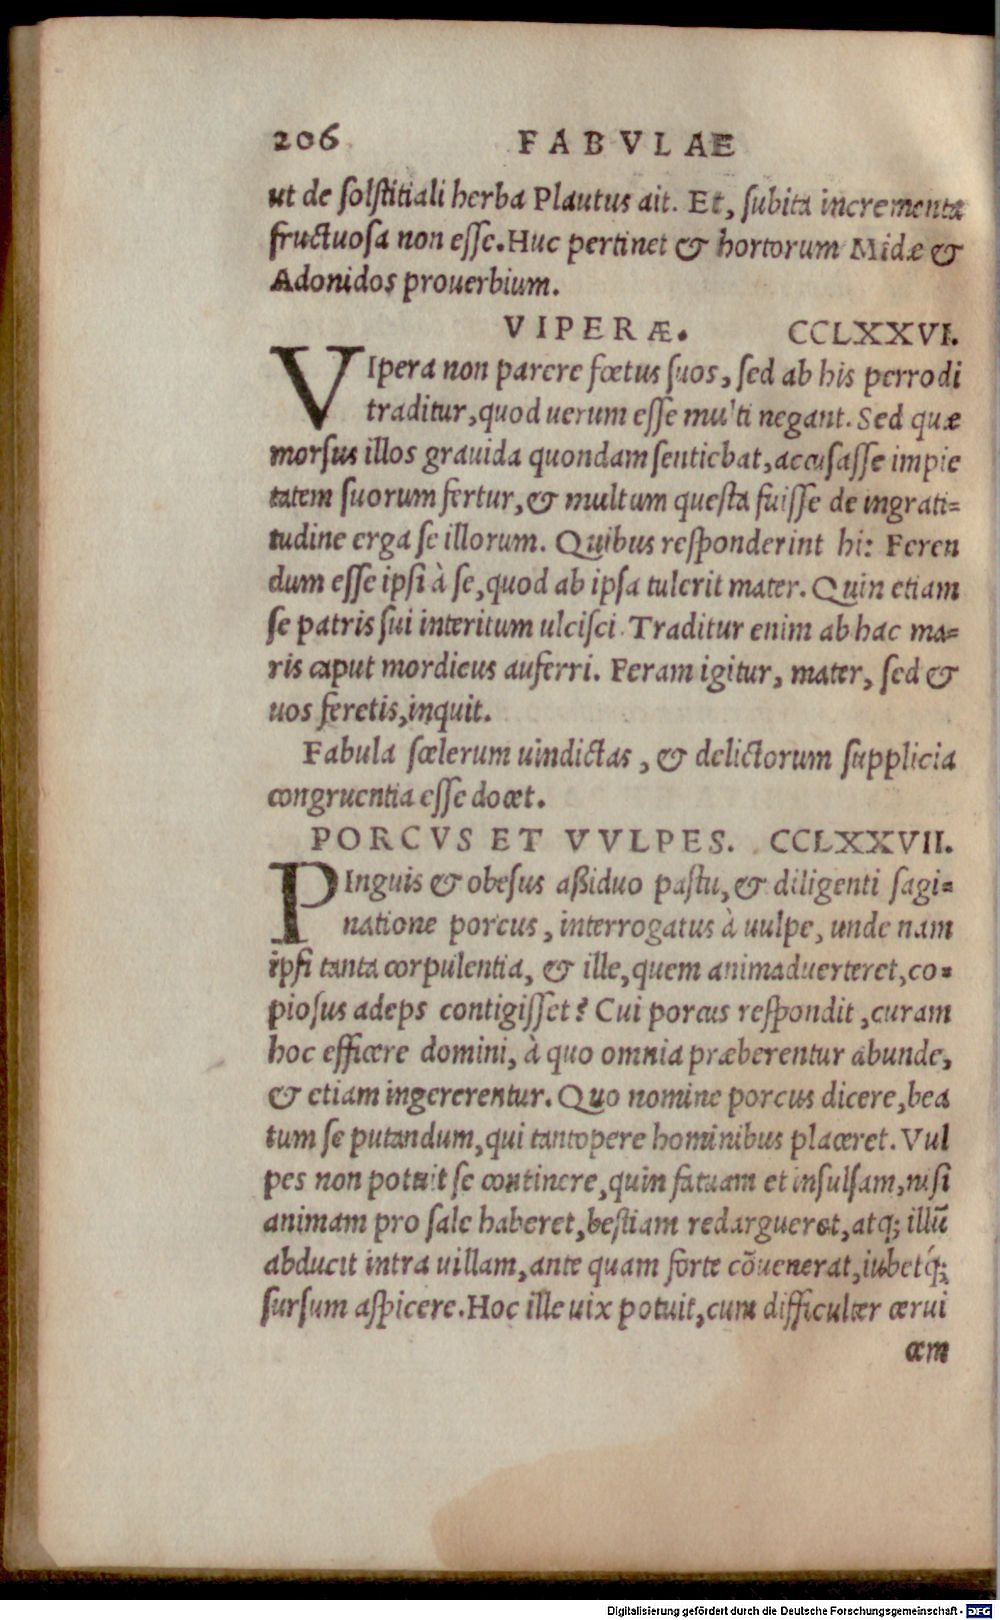 206 FABVLAE
ut de solstitiali herba Plautus ait. Et, subita incrementa
fructuosa non esse. Huc pertinet & hortorum Midæ &
Adonidos prouerbium.
VIPERÆ. CCLXXVI.
VIpera non parere fœtus suos, sed ab his perrodi
traditur, quod uerum esse multi negant. Sed quæ
morsus illos grauida quondam sentiebat, accusasse impie
tatem suorum fertur, & multum questa fuisse de ingrati-
tudine erga se illorum. Quibus responderint hi: Feren
dum esse ipsi à se, quod ab ipsa tulerit mater. Quin etiam
se patris sui interitum ulcisci. Traditur enim ab hac ma-
ris caput mordicus auferri. Feram igitur, mater, sed &
uos feretis, inquit.
Fabula scelerum uindictas, & delictorum supplicia
congruentia esse docet.
PORCVS ET VVLPES. CCLXXVII.
PInguis & obesus aßiduo pastu, & diligenti sagi-
natione porcus, interrogatus à uulpe, unde nam
ipsi tanta corpulentia, & ille, quem animaduerteret, co-
piosus adeps contigisset? Cui porcus respondit, curam
hoc efficere domini, à quo omnia præberentur abunde,
& etiam ingererentur. Quo nomine porcus dicere, bea
tum se putandum, qui tantopere hominibus placeret. Vul
pes non potuit se continere, quin fatuam et insulsam, nisi
animam pro sale haberet, bestiam redargueret, atq; illū
abducit intra uillam, ante quam forte cōuenerat, iubetq́;
sursum aspicere. Hoc ille uix potuit, cum difficulter cerui
cem
Digitalisierung gefördert durch die Deutsche Forschungsgemeinschaft - DFG